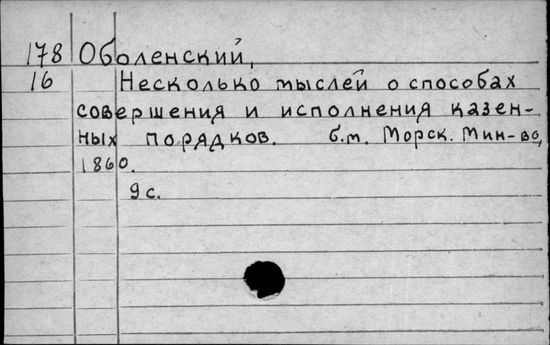 178 Оболенский,
16 Несколько мыслей о способах
совершения и исполнения казен-
ных порядков. б.м. Морск. Мин-во,
1860.
9 с.